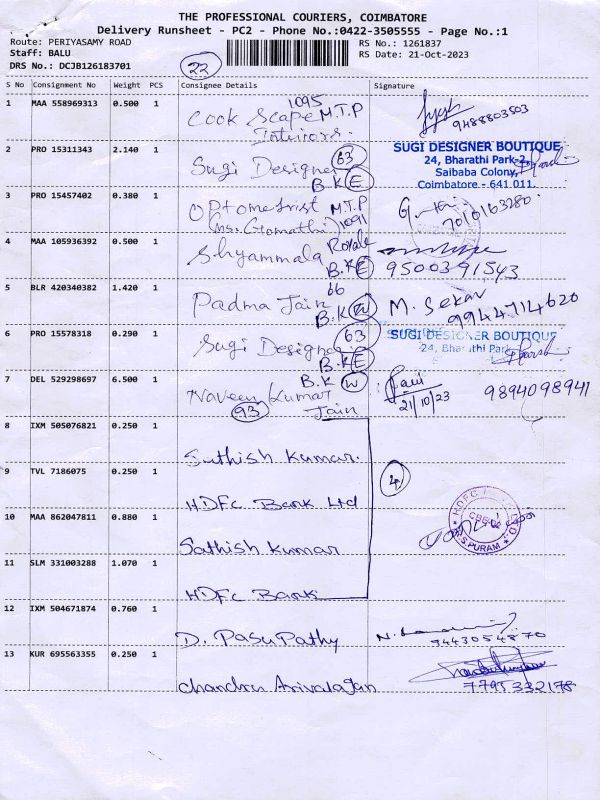 THE PROFESSIONAL COURIERS, COIMBATORE
Delivery Runsheet - PC2 - Phone No.:0422-3505555 - Page No.:1
Route: PERIYASAMY ROAD
RS No.: 1261837
Staff: BALU
RS Date: 21-Oct-2023
DRS No.: DCJB126183701
22
S No Consignment No Weight PCS Consignee Details Signature
1 MAA 558969313 0.500 1 Cook Scape 1095 M.T.P
Interiors.
9488803503
2 PRO 15311343 2.140 1 Sugi Designer 63
B.K E
SUGI DESIGNER BOUTIQUE
24, Bharathi Park-2,
Saibaba Colony,
Coimbatore - 641 011.
3 PRO 15457402 0.380 1 Optometrist M.T.P
(Ms. Gomathi) 1091
7010163280
4 MAA 105936392 0.500 1 Shyammala Royale
B.K E
9500391543
5 BLR 420340382 1.420 1 Padma Jain 66
B.K W
M. Sekar
9944714620
6 PRO 15578318 0.290 1 Sugi Designer 63
B.K E
SUGI DESIGNER BOUTIQUE
24, Bharathi Park
7 DEL 529298697 6.500 1 Naveen Kumar B.K W
93 Jain
21/10/23
9894098941
8 IXM 505076821 0.250 1
Sathish Kumar.
9 TVL 7186075 0.250 1
4
HDFC Bank Ltd
10 MAA 862047811 0.880 1
Sathish Kumar
HDFC
CBE-02
R.S.PURAM
11 SLM 331003288 1.070 1
HDFC Bank
12 IXM 504671874 0.760 1
D. Pasupathy
9443054870
13 KUR 695563355 0.250 1
Chandru Arivalajan
7795332178